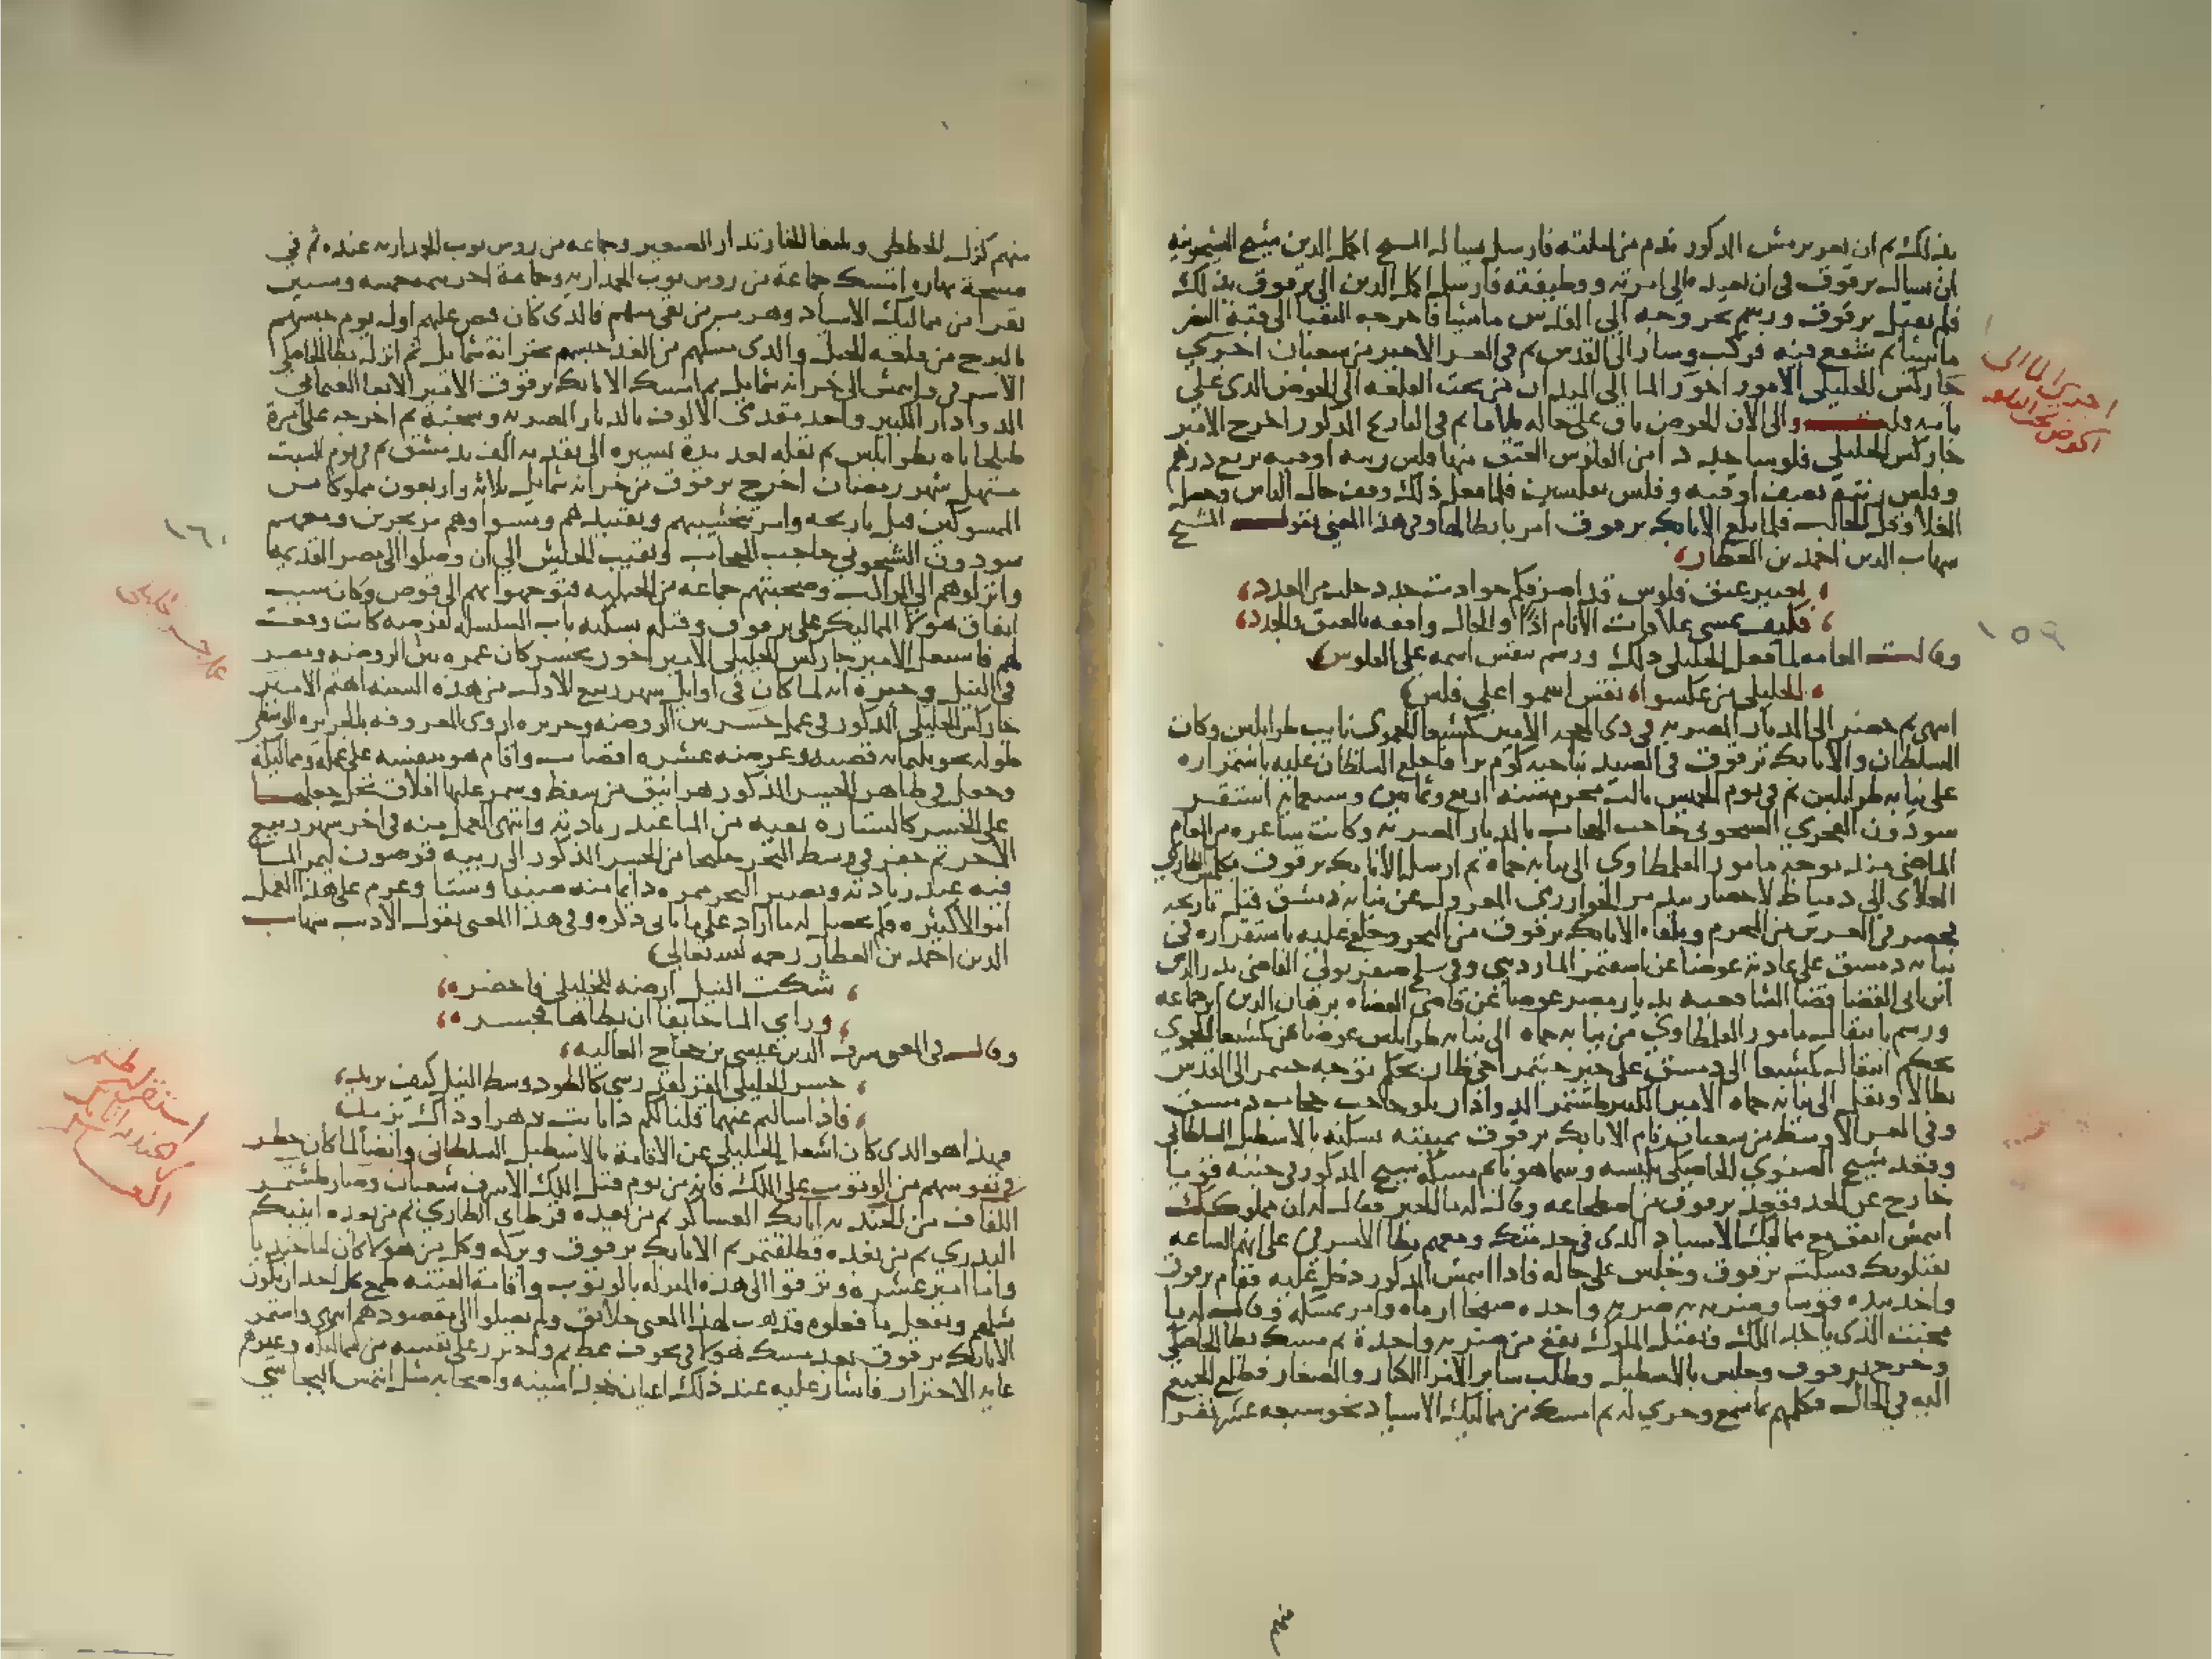 بذلك ثم ان تمربرمش المذكور ندم من ليلته فارسل يسال الشيخ اكمل الدين شيخ الشيخونيه
ان يسال برقوق في ان يعيده الى امرته ووظيفته فارسل اكمل الدين الى برقوق بذلك
فلم يقبل برقوق ورسم بخروجه الى القدس ماشيا فاخرجه النقبا الى قبة النصر
ماشيا ثم شفع فيه فركب وسار الى القدس ثم في العشر الاخير من شعبان اجري
جاركس الخليلي الامير اخور الما الى الميدان من تحت القلعه الى الحوض الذي على
بابه والى الان الحوض باق على حاله ثم في التاريخ المذكور اخرج الامير
جاركس الخليلي فلوسا جددا من الفلوس العتق منها فلس زنته اوقيه بربع درهم
وفلس زنته نصف اوقيه وفلس بفلسين فلما فعل ذلك وقف حال الناس وحصل
الغلا وقل الجالب فلما بلغ الاتابك برقوق امر بابطالها وفي هذا المعنى يقول الشيخ
شهاب الدين احمد بن العطار
تغيير عتق فلوس قد اضر فكم حوادث جدد جلت من العدد
فكيف تمشي علاقات الانام اذا والحال واقفه بالعتق والجدد
وقالت العامه لما فعل الخليلي ذلك ورسم بنقش اسمه على الفلوس
الخليلي من عكسوا نقش اسموا على فلس
انتهى ثم حضر الى الديار المصريه في ذى الحجه الامير كمشبغا الحموى نايب طرابلس وكان
السلطان والاتابك برقوق في الصيد بناحيه كوم برا فاخلع السلطان عليه باستمراره
على نيابه طرابلس ثم في يوم الخميس ثالث محرم سنة اربع وثمانين وسبعمايه استقر
سودون الفخري الشيخوني حاجب الحجاب بالديار المصريه وكانت شاغره من العام
الماضي منذ توجه مامور القلمطاوى الى نيابه حماه ثم ارسل الاتابك برقوق بكلمش الطازي
العلاى الى دمياط لاحضار بيدمر الخوارزمي المعزول عن نيابه دمشق قبل تاريخه
فحضر في العشرين من المحرم وتلقاه الاتابك برقوق من البحر وخلع عليه باستقراره في
نيابه دمشق على عادته عوضا عن اشقتمر المارديني وفي سلخ صفر تولى القاضي بدر الدين
ابن ابي البقا قضا الشافعيه بديار مصر عوضا عن قاضي القضاه برهان الدين ابن جماعه
ورسم بانتقال مامور القلمطاوي من نيابه حماه الى نيابه طرابلس عوضا عن كمشبغا الحموى
بحكم انتقال كمشبغا الى دمشق على خبز جنتمر اخي طاز بحكم توجه جنتمر الى القدس
بطالا ونقل الى نيابه حماه الامير الكبير طشتمر الدوادار
وفي العشر الاوسط من شعبان نام الاتابك برقوق بمبيته بسكنه بالاسطبل السلطاني
وقعد شيخ الصفوي الخاصكي يكبسه وبينما هو نايم
خارج عن الحد فقعد برقوق من اضطجاعه وقال له ما الخبر فقال له ان مملوكك
ايتمش اتفق مع مماليك الاسياد الذى في خدمتك ومعهم بطا الاشرفي على انهم الساعه
يقتلونك فسكت برقوق وجلس على حاله فاذا ايتمش المذكور دخل عليه فقام برقوق
واخذ بيده قوسا وضربه به ضربه واحده صفحا ارماه وامر بمسكه وقال له يا
مخنث الذى ياخذ الملك ويقتل الملوك يقع من ضربه واحدة ثم مسك بطا الخاصكي
وخرج برقوق وجلس بالاسطبل وطلب ساير الامرا الكبار والصغار فطلع الجميع
اليه في الحال فكلمهم بما سمع وجري له ثم امسك من مماليك الاسياد نحو سبعه عشر نفرا
اجرى الما الى
الحوض تحت القلعه
١٥٩
منهم كزل الحططي ويلبغا الخازندار الصغير وجماعه من روس نوب الجمداريه عنده ثم في
صبيحة نهاره امسك جماعة من روس نوب الجمداريه وجماعة اخر تتمه خمسه وستين
نفرا من مماليك الاسياد وهرب من بقي منهم فالذى كان قبض عليهم اول يوم حبسهم
بالبرج من قلعه الجبل والذى مسكهم من الغد حبسهم بخزانة شمايل ثم انزل بطا الخاصكي
الاشرفي وايتمش الى خزانه شمايل ثم امسك الاتابك برقوق الامير الابغا العثماني
الدوادار الكبير واحد مقدمي الالوف بالديار المصريه وسجنه ثم اخرجه على امرة
طبلخاناه بطرابلس ثم نقله بعد مدة يسيره الى تقدمه الف بدمشق ثم في يوم السبت
مستهل شهر رمضان اخرج برقوق من خزانه شمايل ثلاثه واربعون مملوكا من
الممسوكين قبل تاريخه وامر بتخشيبهم وتقييدهم ومشوا وهم مزنجرين ومعهم
سودون الشيخوني حاجب الحجاب ونقيب الجيش الى ان وصلوا الى مصر القديمه
وانزلوهم الى المراكب وصحبتهم جماعه من الجبليه فتوجهوا بهم الى قوص وكان سبب
اتفاق هولا المماليك على برقوق وقتله بسكنه باب السلسله لفرصه كانت وقعت
لهم باشتغال الامير جاركس الخليلي الامير اخور بجسر كان عمره بين الروضه ومصر
في النيل وخبره انه لما كان في اوايل شهر ربيع الاول من هذه السنه اهتم الامير
جاركس الخليلي المذكور في عمل جسر بين الروضه وجزيره اروى المعروفه بالجزيره الوسطى
طوله نحو ثلثمايه قصبه وعرضه عشره اقصاب واقام هو بنفسه على عمله ومماليكه
وجعل في ظاهر الجسر المذكور خوابيق من سنط وسمر عليها افلاق نخل جعلها
على الجسر كالستاره تقيه من الما عند زيادته وانتهى العمل منه في اخر شهر ربيع
الاخر ثم حفر في وسط البحر خليجا من الجسر المذكور الى زريبه قوصون ليمر الما
فيه عند زيادته ويصير البحر ممره دايما منه صيفا وشتا وغرم على هذا العمل
اموالا كثيره فلم يحصل له ما اراد على ما ياتي ذكره وفي هذا المعنى يقول الاديب شهاب
الدين احمد بن العطار رحمه الله تعالى
شكت النيل ارضه للخليلي فاحضره
وراى الما خايفا ان يطاها فجسره
وقال في المعنى شرف الدين عيسى بن حجاج العاليه
جسر الخليلي المقر لقد رسى كالطود وسط النيل كيف يريد
فاذا سالتم عنهما قلنا لكم ذا ثابت دهرا وذاك يزيد
فهذا هو الذى كان اشغل الخليلي عن الاقامة بالاسطبل السلطاني وايضا لما كان خطر
في نفوسهم من الوثوب على الملك فانه من يوم قتل الملك الاشرف شعبان وصار طشتمر
اللفاف من الجنديه اتابك العساكر ثم من بعده قرطاى الطازي ثم من بعده اينبك
البدري ثم من بعده قطلقتمر ثم الاتابك برقوق وبركه وكل من هولا كان اما جنديا
واما امير عشره وترقوا الى هذه المنزله بالوثوب واقامة الفتنه طمع كل احد ان يكون
مثلهم ويفعل ما فعلوه فذهب لهذا المعنى خلايق ولم يصلوا الى مقصودهم انتهى واستمر
الاتابك برقوق بعد مسك هولا في تخوف عظيم واحترز على نفسه من مماليكه وغيرهم
غايه الاحتراز فاشار عليه عند ذلك اعيان خجداشيته واصحابه مثل ايتمش البجاسي
١٦٠
استقر طشتمر
من الجنديه اتابك
العساكر